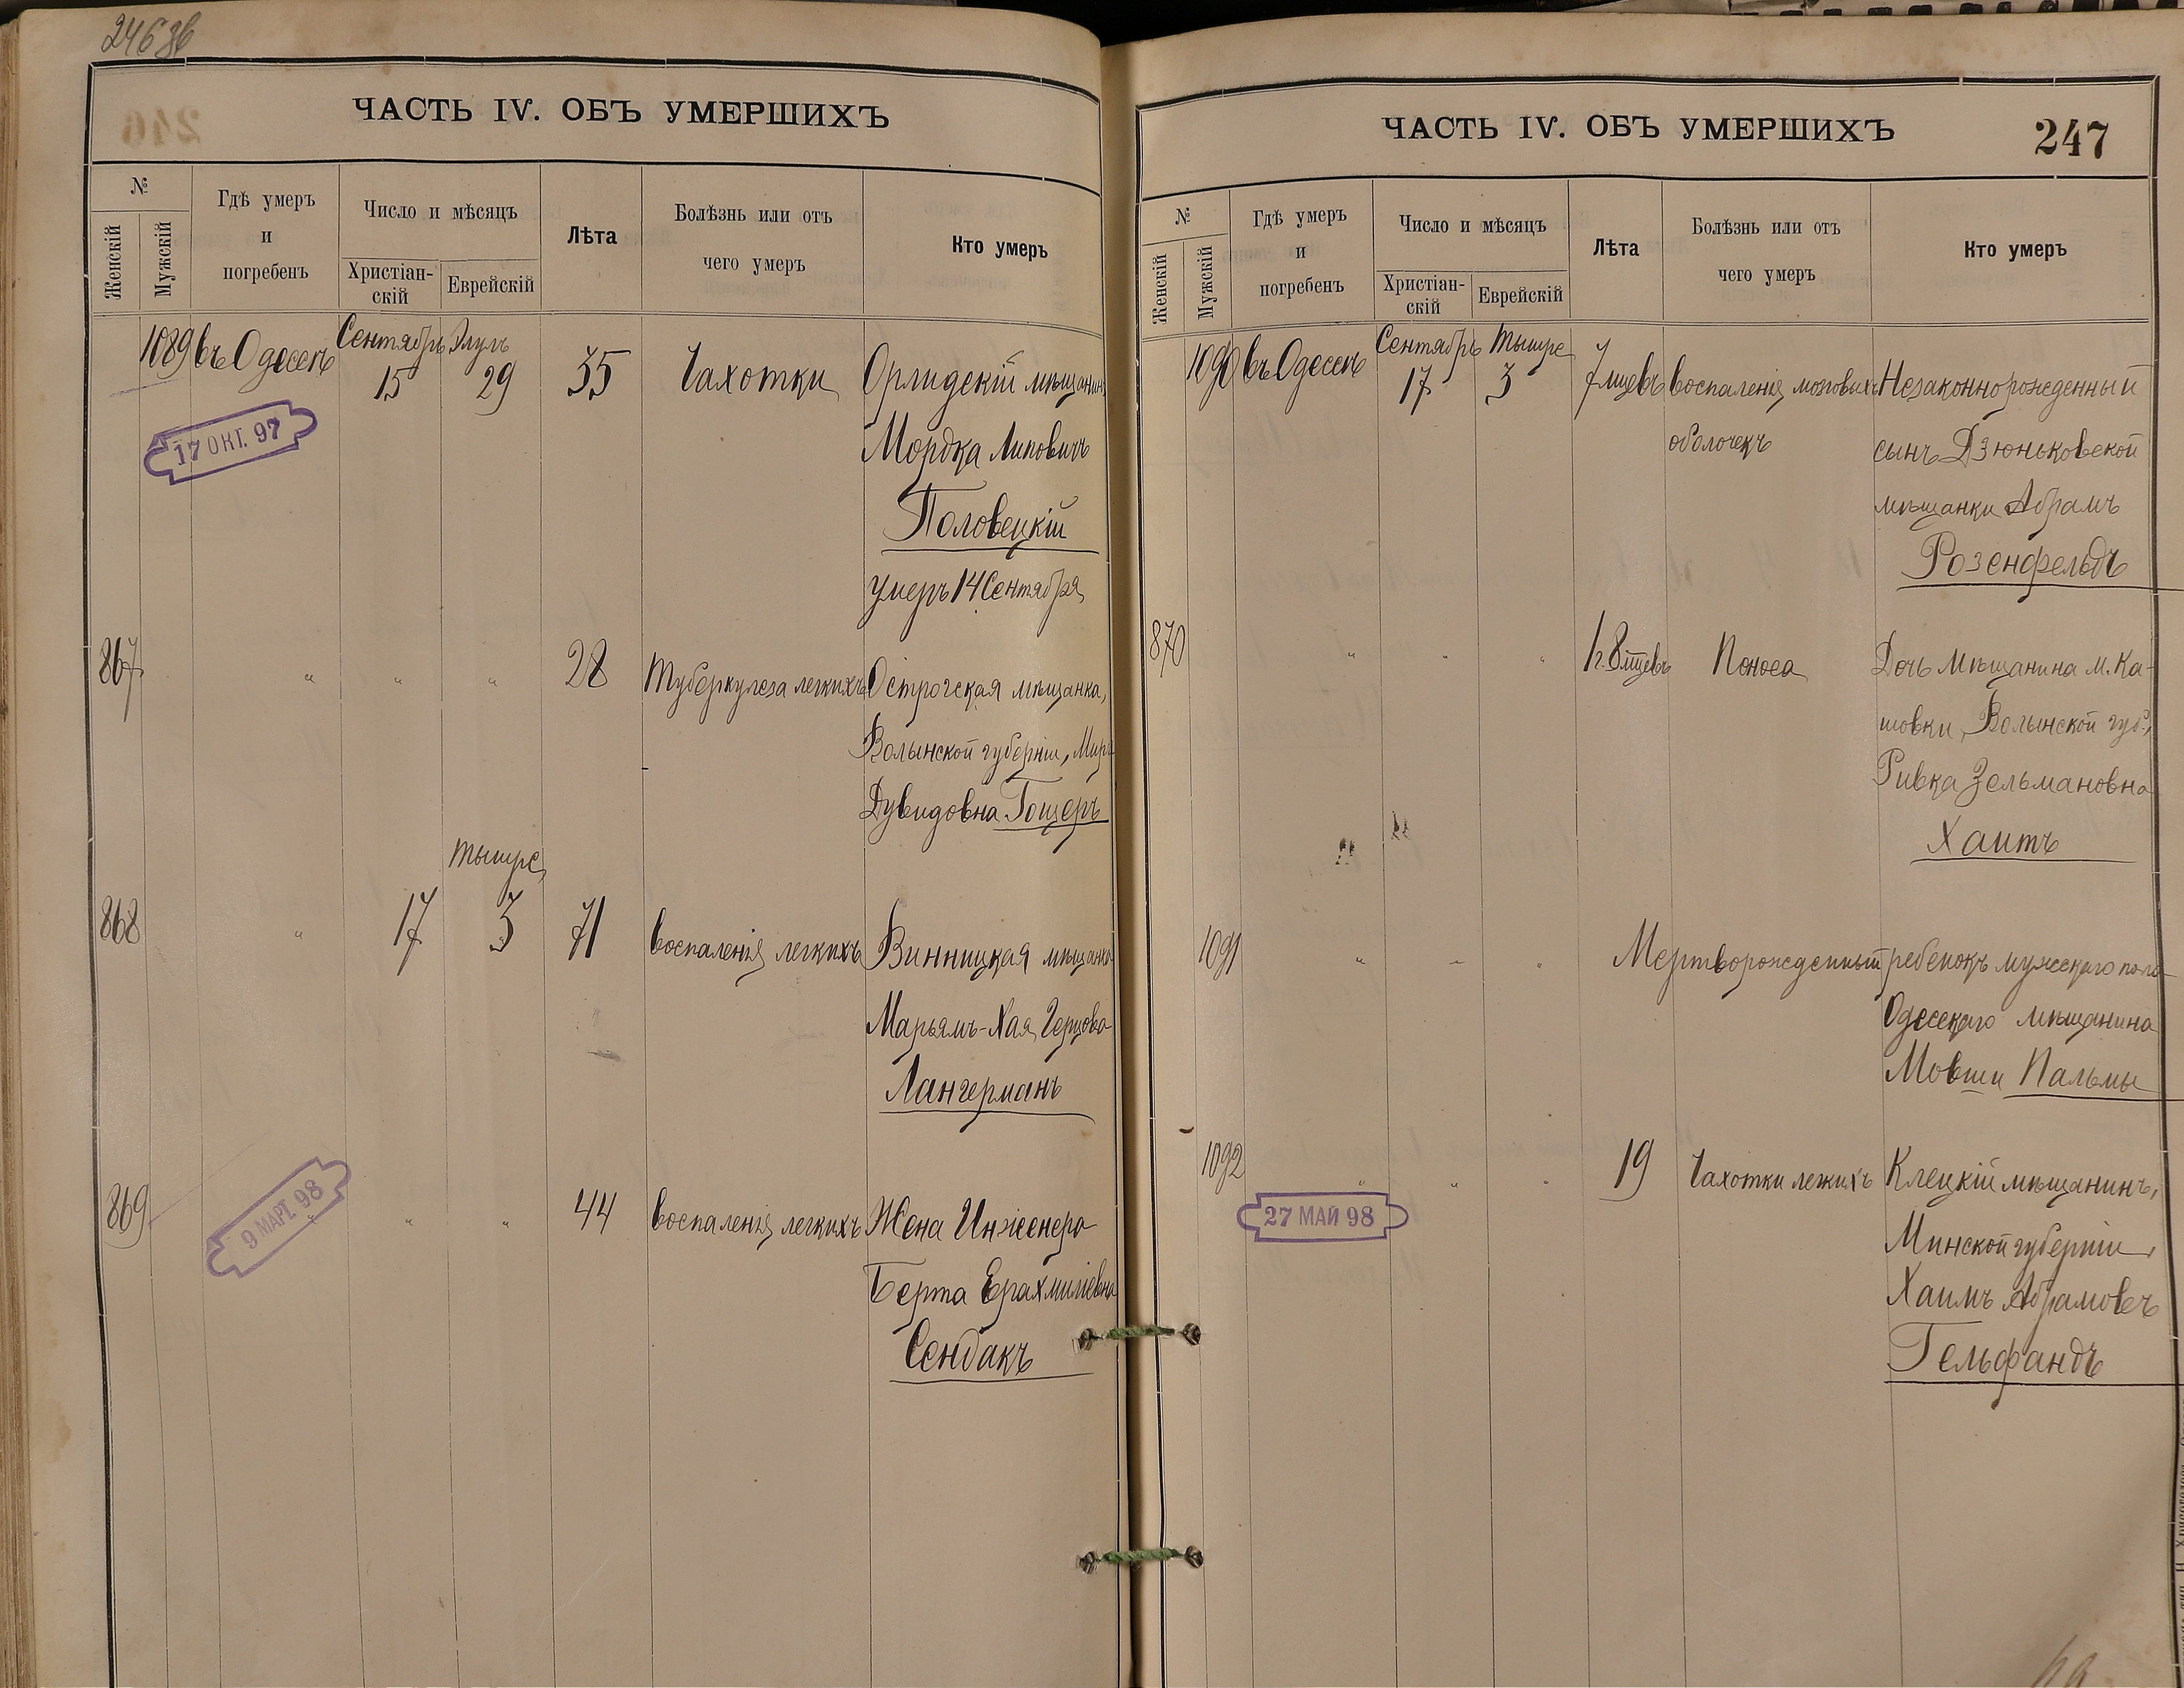 246 об
ЧАСТЬ IV. ОБЪ УМЕРШИХЪ
№
Женскій
Мужскій
Гдѣ умеръ
и
погребенъ
Число и мѣсяцъ
Христіан-
скій
Еврейскій
Лѣта
Болѣзнь или отъ
чего умеръ
Кто умеръ
Сентябрь Элулъ
1089 въ Одессѣ 15 29 35 Чахотки Орлидскій мѣщанинъ
17 ОКТ. 97
Мордка Липовичъ
Половецкій
умеръ 14 Сентября
867 " " " 28 Туберкулеза легкихъ Острогская мѣщанка,
Волынской губерніи,
Дувидовна Гощеръ
Тышре
868 " 17 3 71 Воспаленія легкихъ Винницкая мѣщанка
Марьямъ-Хая Герцова
Лангерманъ
869 " " " 44 Воспаленія легкихъ Жена Инженера
9 МАРТ. 98
Берта Ерахмиліевна
Сендакъ
ЧАСТЬ IV. ОБЪ УМЕРШИХЪ
247
№
Женскій
Мужскій
Гдѣ умеръ
и
погребенъ
Число и мѣсяцъ
Христіан-
скій
Еврейскій
Лѣта
Болѣзнь или отъ
чего умеръ
Кто умеръ
Сентябрь Тышре
1090 въ Одессѣ 17 3 7 мцевъ Воспаленія мозговыхъ Незаконнорожденный
оболочекъ сынъ Дзюньковской
мѣщанки Абрамъ
Розенфельдъ
870 " " " 1 г. 8 мцевъ Поноса Дочь мѣщанина м. Ка-
шовки, Волынской губ.,
Ривка Зельмановна
Хаитъ
1091 " " " Мертворожденный ребенокъ мужескаго пола
Одесскаго мѣщанина
Мовши Пальмы
1092 " " " 19 Чахотки легкихъ Клецкій мѣщанинъ,
27 МАЙ 98
Минской губерніи,
Хаимъ Абрамовъ
Гельфандъ